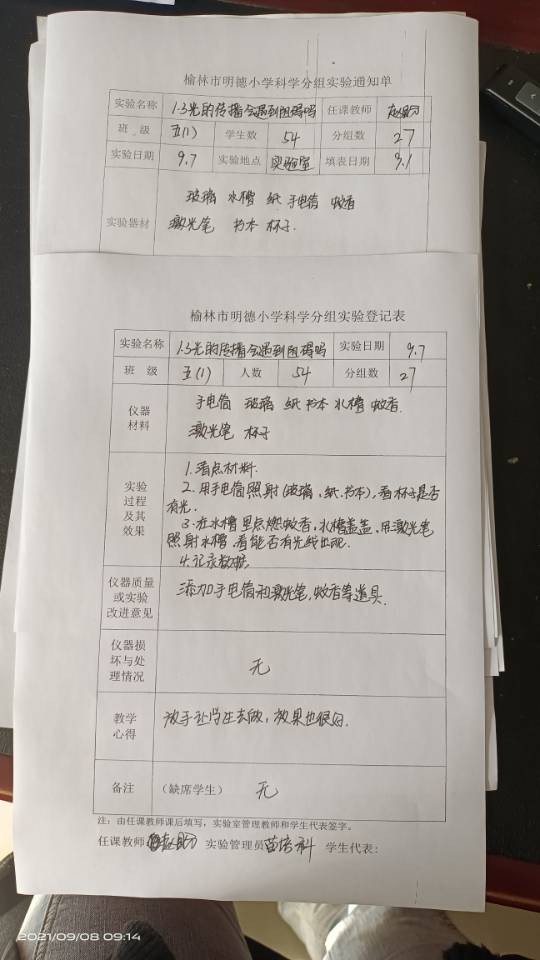 榆林市明德小学科学分组实验通知单
实验名称 1.3光的传播会遇到阻碍吗 任课教师
班 级 五(1) 学生数 54 分组数 27
实验日期 9.7 实验地点 实验室 填表日期 9.1
玻璃 水槽 纸 手电筒 蚊香
实验器材 激光笔 书本 杯子.
榆林市明德小学科学分组实验登记表
实验名称 1.3光的传播会遇到阻碍吗 实验日期 9.7
班 级 五(1) 人数 54 分组数 27
仪器 手电筒 玻璃 纸 书本 水槽 蚊香.
材料 激光笔 杯子
实验
过程
及其
效果
1.清点材料.
2.用手电筒照射(玻璃、纸、书本),看杯子是否
有光.
3.在水槽里点燃蚊香,水槽盖盖,用激光笔
照射水槽,看能否有光线出现.
4.记录数据.
仪器质量
或实验
改进意见
添加手电筒和激光笔,蚊香等道具.
仪器损
坏与处
理情况
无
教学
心得
放手让学生去做,效果也很好.
备注 (缺席学生) 无
注:由任课教师课后填写,实验室管理教师和学生代表签字。
任课教师 实验管理员 苗培科 学生代表:
2021/09/08 09:14